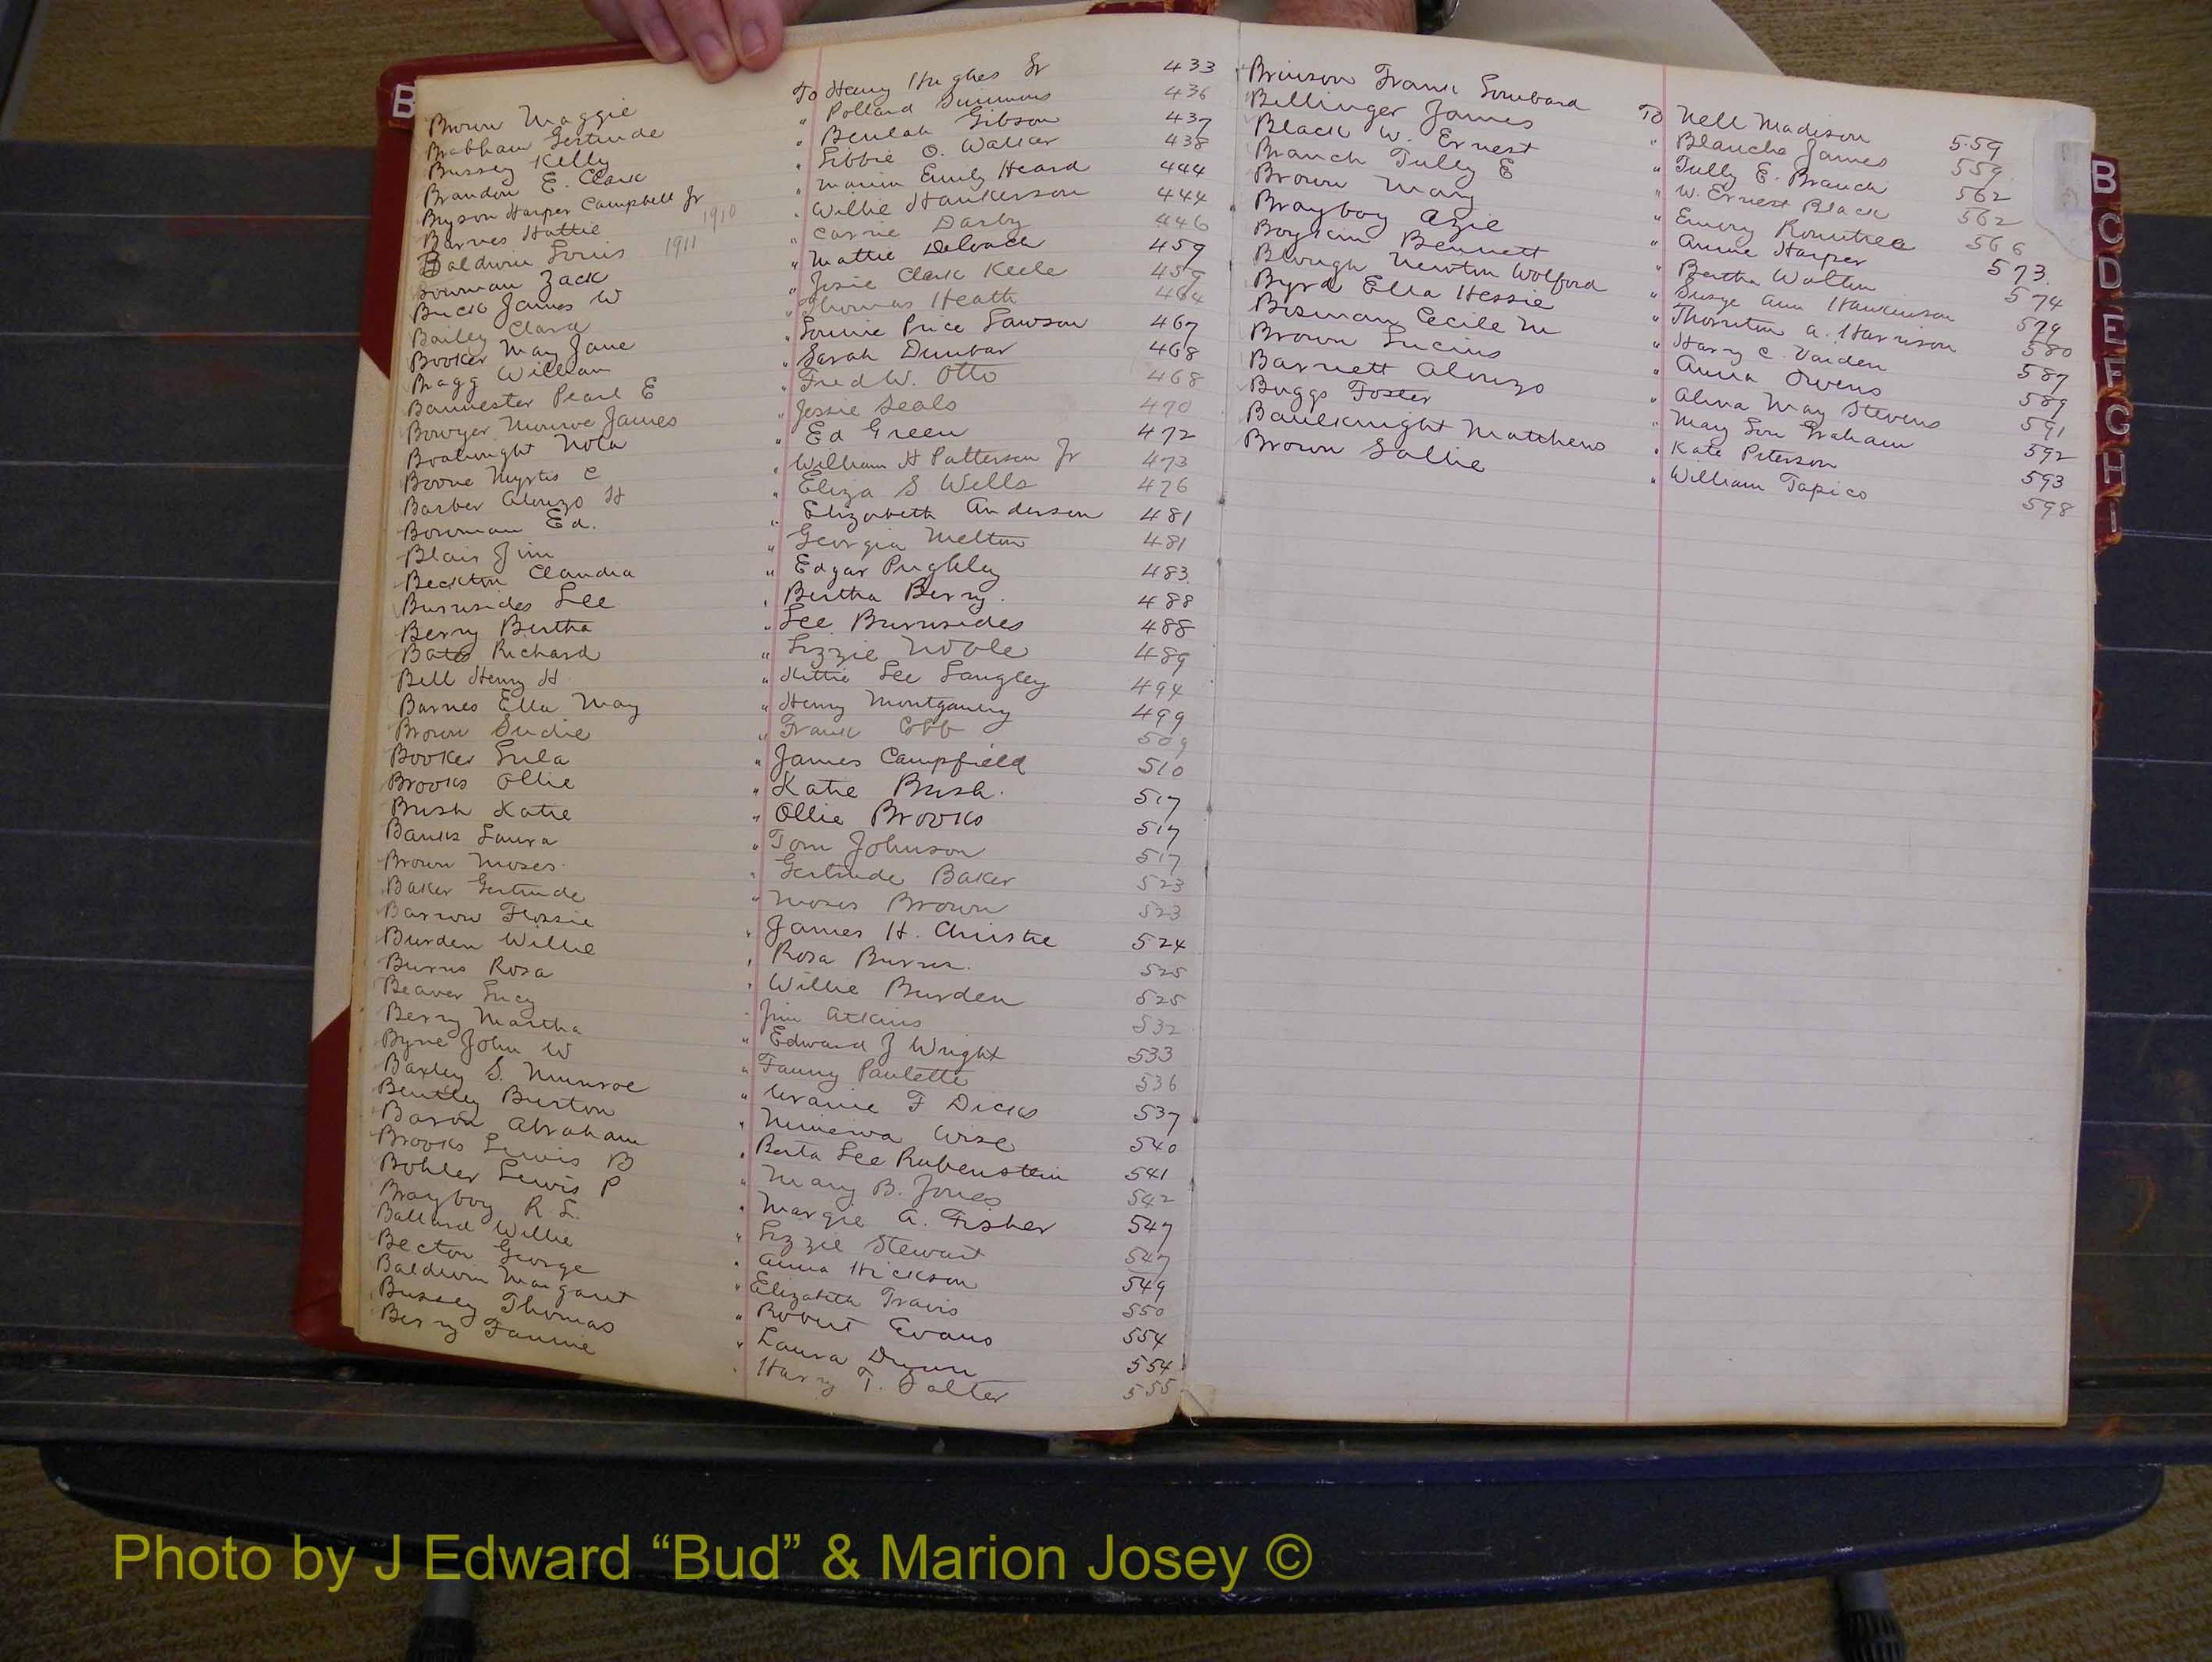 B
Brown Maggie To Henry Hughes Jr 433
Brabham Gertrude " Pollard Simmons 436
Bussey Kelly " Beulah Gibson 437
Brandon E. Clark " Libbie O. Walker 438
Bryson Harper Campbell Jr " Marion Emily Heard 444
Barnes Hattie 1910 " Willie Hankerson 444
Baldwin Louis 1911 " Carrie Darby 446
Bowman Zack " Mattie DeLoach 459
Buck James W " Josie Clark Keele 459
Bailey Clara " Thomas Heath 464
Booker May Jane " Lonnie Price Lawson 467
Bragg William " Sarah Dunbar 468
Bannester Pearl E " Fred W. Otto 468
Bowyer Monroe James " Jessie Seals 470
Boatwright Nola " Ed Green 472
Boone Myrtis C " William H Patterson Jr 473
Barber Alonzo H " Eliza S Wells 476
Bowman Ed. " Elizabeth Anderson 481
Blair Jim " Georgia Melton 481
Beckton Claudia " Edgar Pughley 483
Burnsides Lee " Bertha Berry. 488
Berry Bertha " Lee Burnsides 488
Bates Richard " Lizzie 489
Bell Henry H " Kittie Lee Langley 494
Barnes Ella May " Henry Montgomery 499
Brown Sudie " Frank Cobb 509
Booker Lula " James Campfield 510
Brooks Ollie " Katie Bush. 517
Bush Katie " Ollie Brooks 517
Banks Laura " Tom Johnson 517
Brown Moses " Gertrude Baker 523
Baker Gertrude " Moses Brown 523
Barrow Flossie " James H. Christie 524
Burden Willie " Rosa Burns. 525
Burns Rosa " Willie Burden 525
Beaver Lucy " Jim Atkins 532
Berry Martha " Edward J Wright 533
Byne John W " Fanny Paulette 536
Baxley S. Munroe " Uranie F Dicks 537
Bentley Burton " Minerva Wise 540
Baron Abraham " Berta Lee Rubenstein 541
Brooks Lewis B " Mary B. Jones 542
Bohler Lewis P " Margie A. Fisher 547
Brayboy R. L. " Lizzie Stewart 547
Ballard Willie " Anna Hickson 549
Becton George " Elizabeth Travis 550
Baldwin Margaret " Robert Evans 554
Bussey Thomas " Laura Dunn 554
Berry Fannie " Harry T. Salter 555
Brinson Frank Lombard To Nell Madison 559
Bellinger James " Blanche James 559
Black W. Ernest " Tully E. Branch 562
Branch Tully E " W. Ernest Black 562
Brown May " Emory Rountree 566
Brayboy Azie " Annie Harper 573.
Boykin Bennett " Bertha Walton 574
Blough Newton Wolford " Ann Hankinson 579
Byrd Ella Hessie " Thornton A. Harrison 580
Bisman Cecile M " Harry C. Varden 587
Brown Lucius " Anna Owens 589
Barnett Alonzo " Alma May Stevens 591
Buggs Foster " May Lou Graham 592
Baulknight Matthews " Kate Peterson 593
Brown Sallie " William Tapico 598
B
C
D
E
F
G
H
I
Photo by J Edward “Bud” & Marion Josey ©